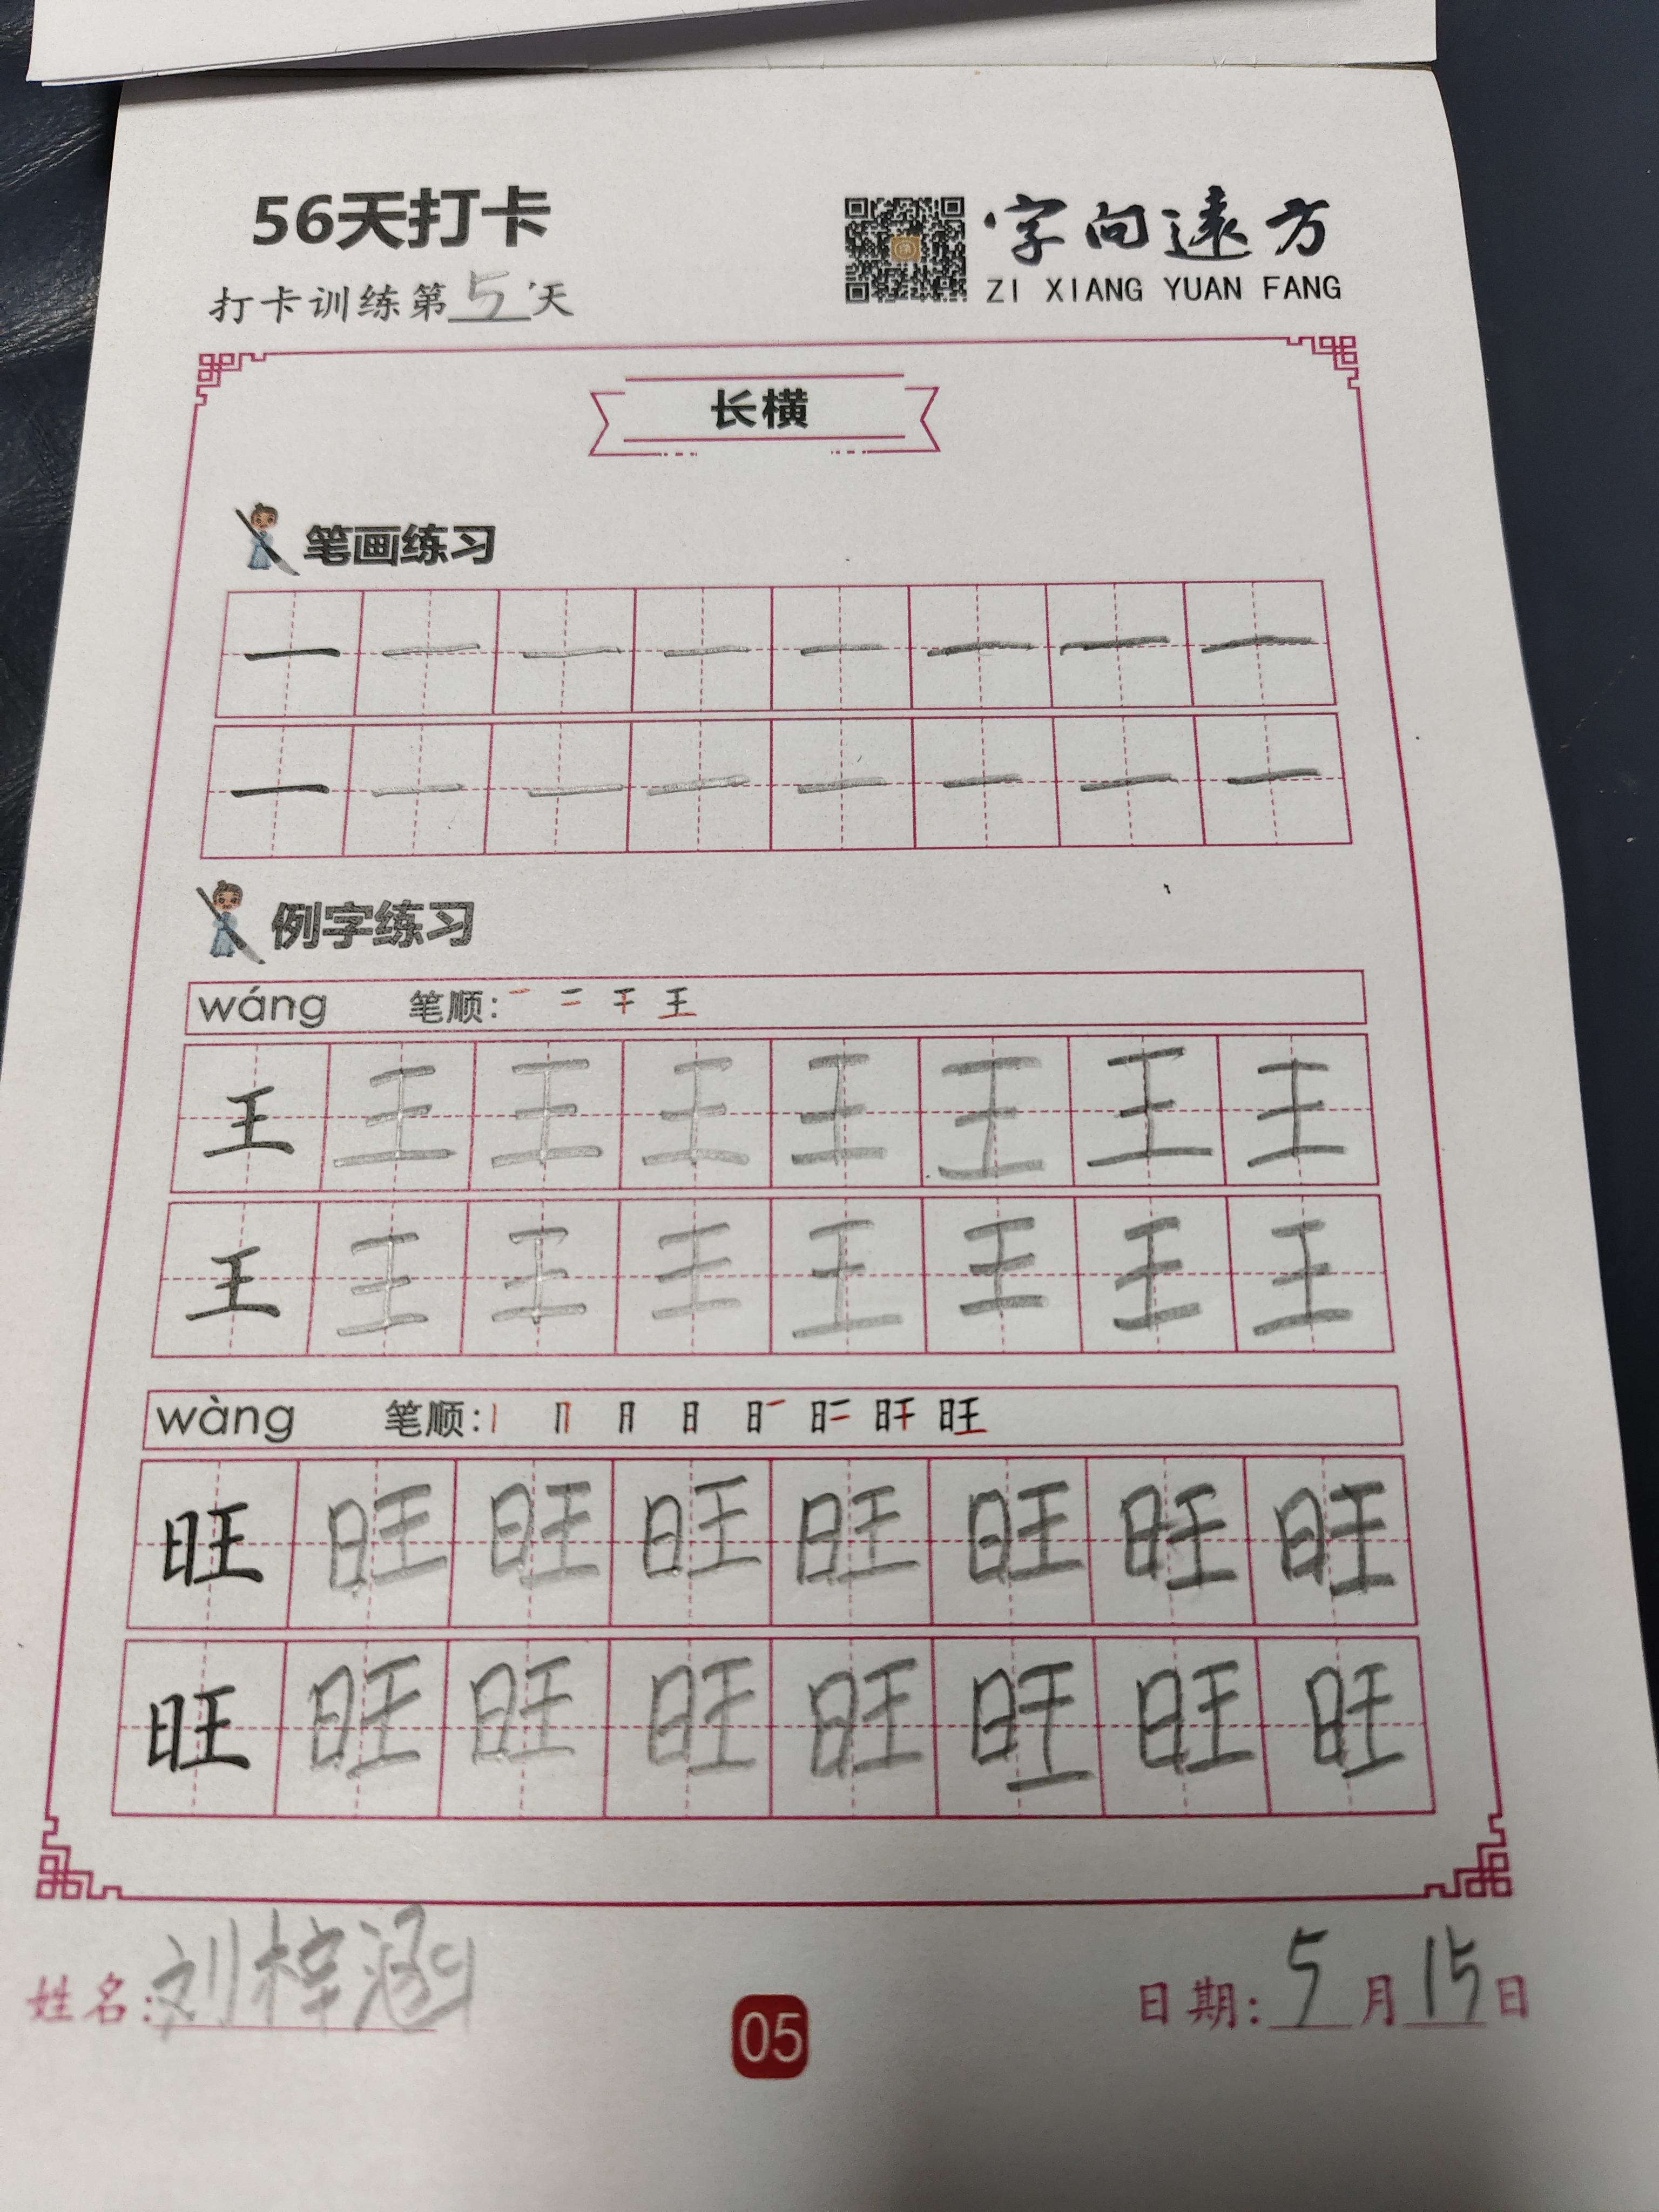 56天打卡
打卡训练第5天
字向遠方
ZI XIANG YUAN FANG
长横
笔画练习
一 一 一 一 一 一 一 一
一 一 一 一 一 一 一 一
例字练习
wáng 笔顺: 一 二 干 王
王 王 王 王 王 王 王 王
王 王 王 王 王 王 王 王
wàng 笔顺: 丨 冂 月 日 日一 日二 旰 旺
旺 旺 旺 旺 旺 旺 旺 旺
旺 旺 旺 旺 旺 旺 旺 旺
姓名: 刘梓涵
05
日期: 5月15日